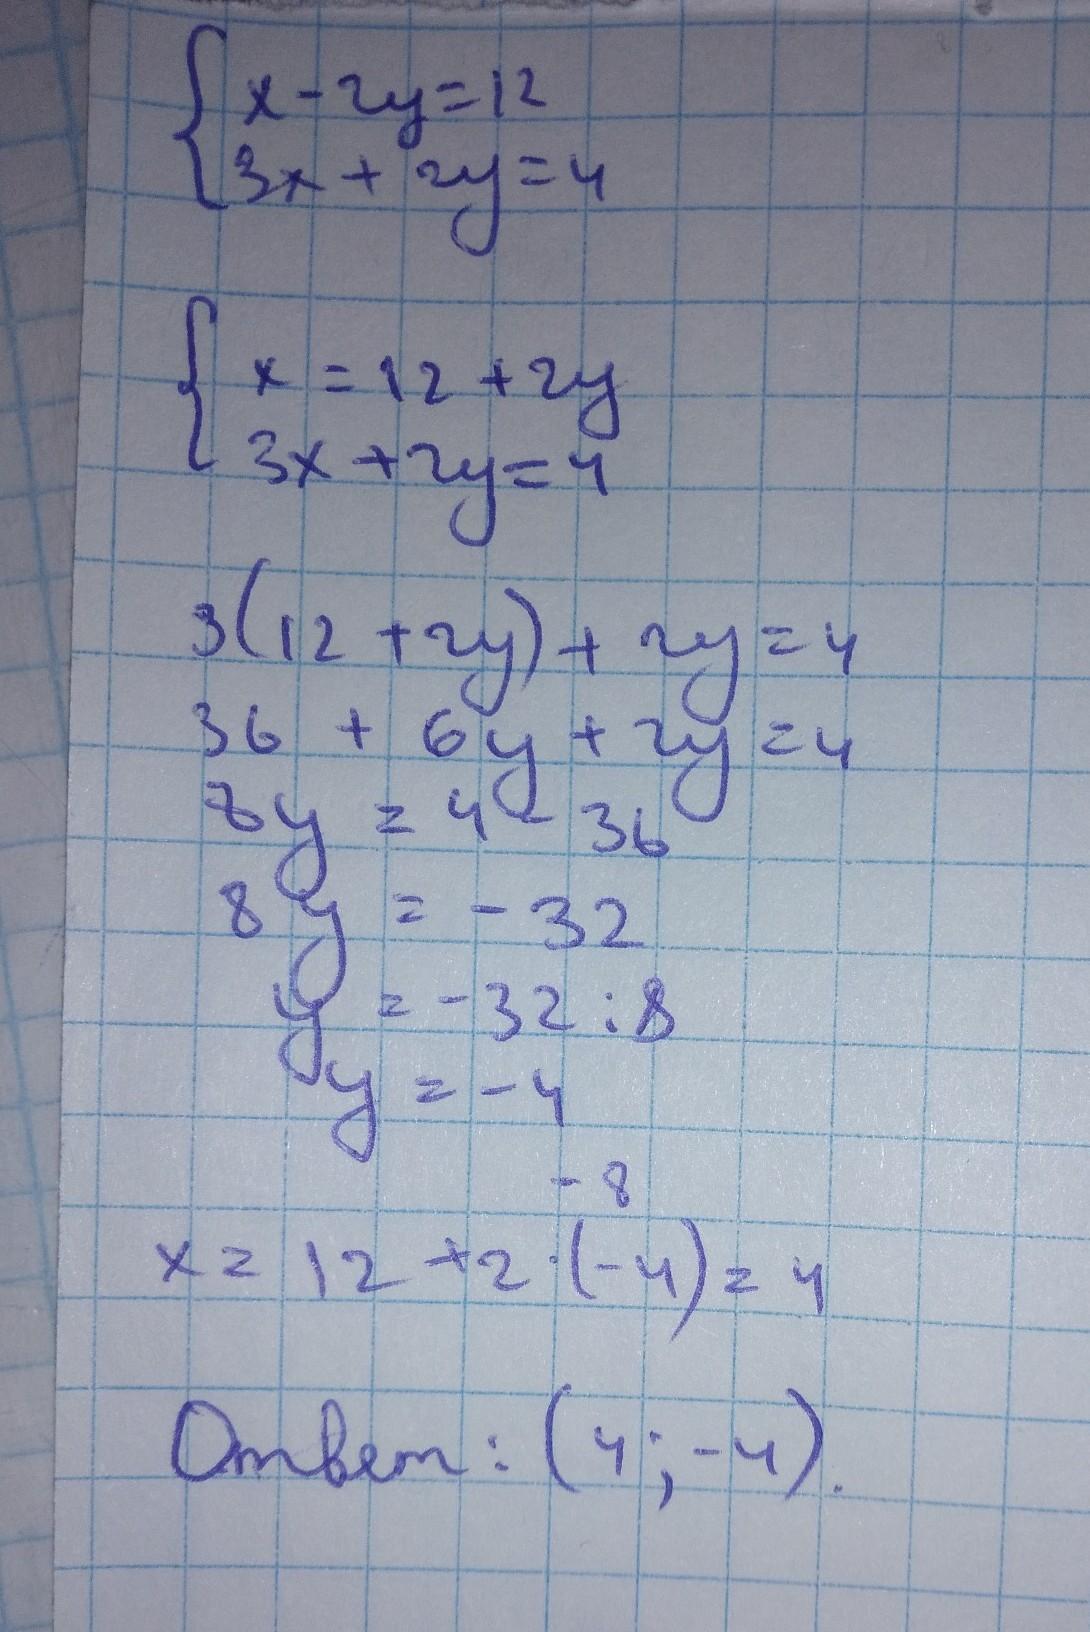 x-2y=12
3x+2y=4
x=12+2y
3x+2y=4
3(12+2y)+2y=4
36+6y+2y=4
8y=4-36
8y=-32
y=-32:8
y=-4
-8
x=12+2·(-4)=4
Ответ: (4;-4).